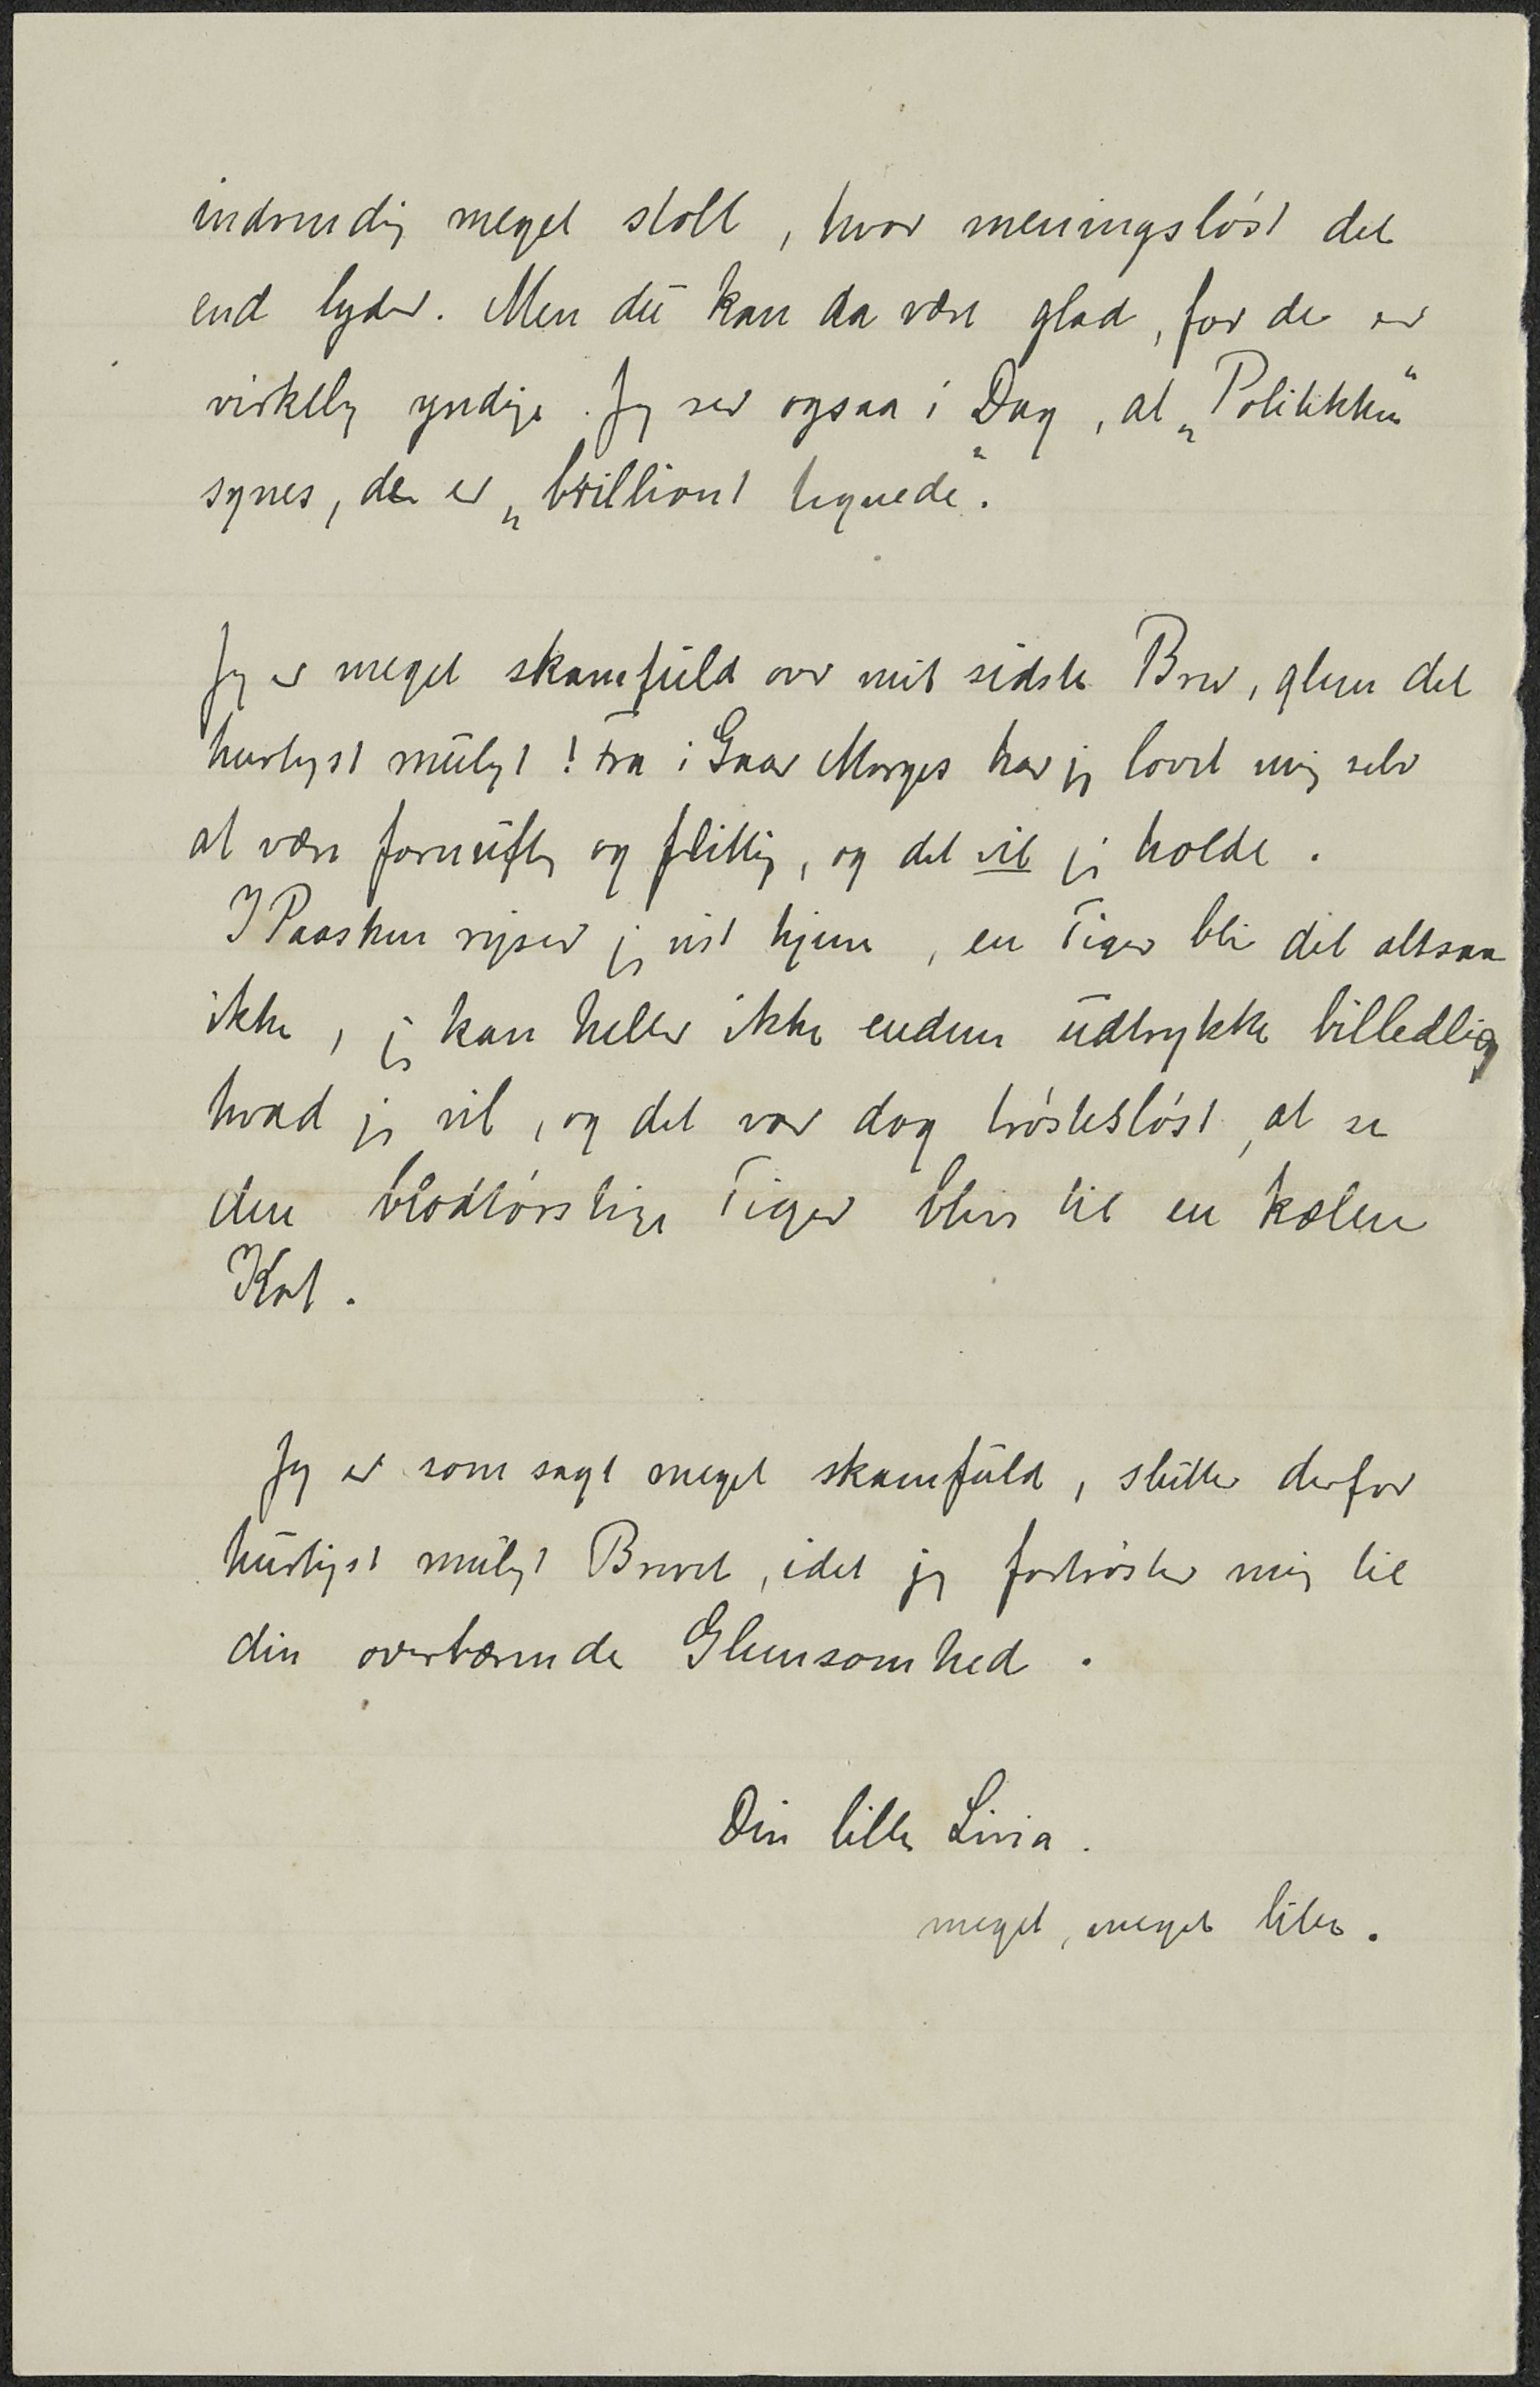 indvendig meget stolt, hvor meningsløst det
end lyder. Men du kan da være glad, for de er
virkelig yndige. Jeg ser ogsaa i Dag, at „Politikken“
synes, de er „brilliant tegnede“.
Jeg er meget skamfuld over mit sidste Brev, glem det
hurtigst muligt! Fra i Gaar Morges har jeg lovet mig selv
at være fornuftig og flittig, og det vil jeg holde.
I Paasken rejser jeg vist hjem, en Tiger bli det altsaa
ikke, jeg kan heller ikke endnu udtrykke billedlig
hvad jeg vil, og det var dog trøstesløst, at se
den blodtørstige Tiger blive til en kælen
Kat.
Jeg er som sagt meget skamfuld, slutter derfor
hurtigst muligt Brevet, idet jeg fortrøster mig til
din overbærende Glemsomhed.
Din lille Livia.
meget, meget lille.